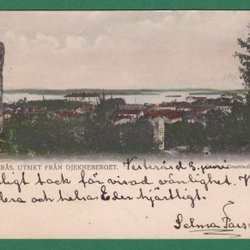 RÅS, UTSIKT FRÅN DJEKNEBERGET.
Västerås 3 juni
ligt tack för visad vänlighet. V
era och helsa Eder hjertligt.
Selma Pau